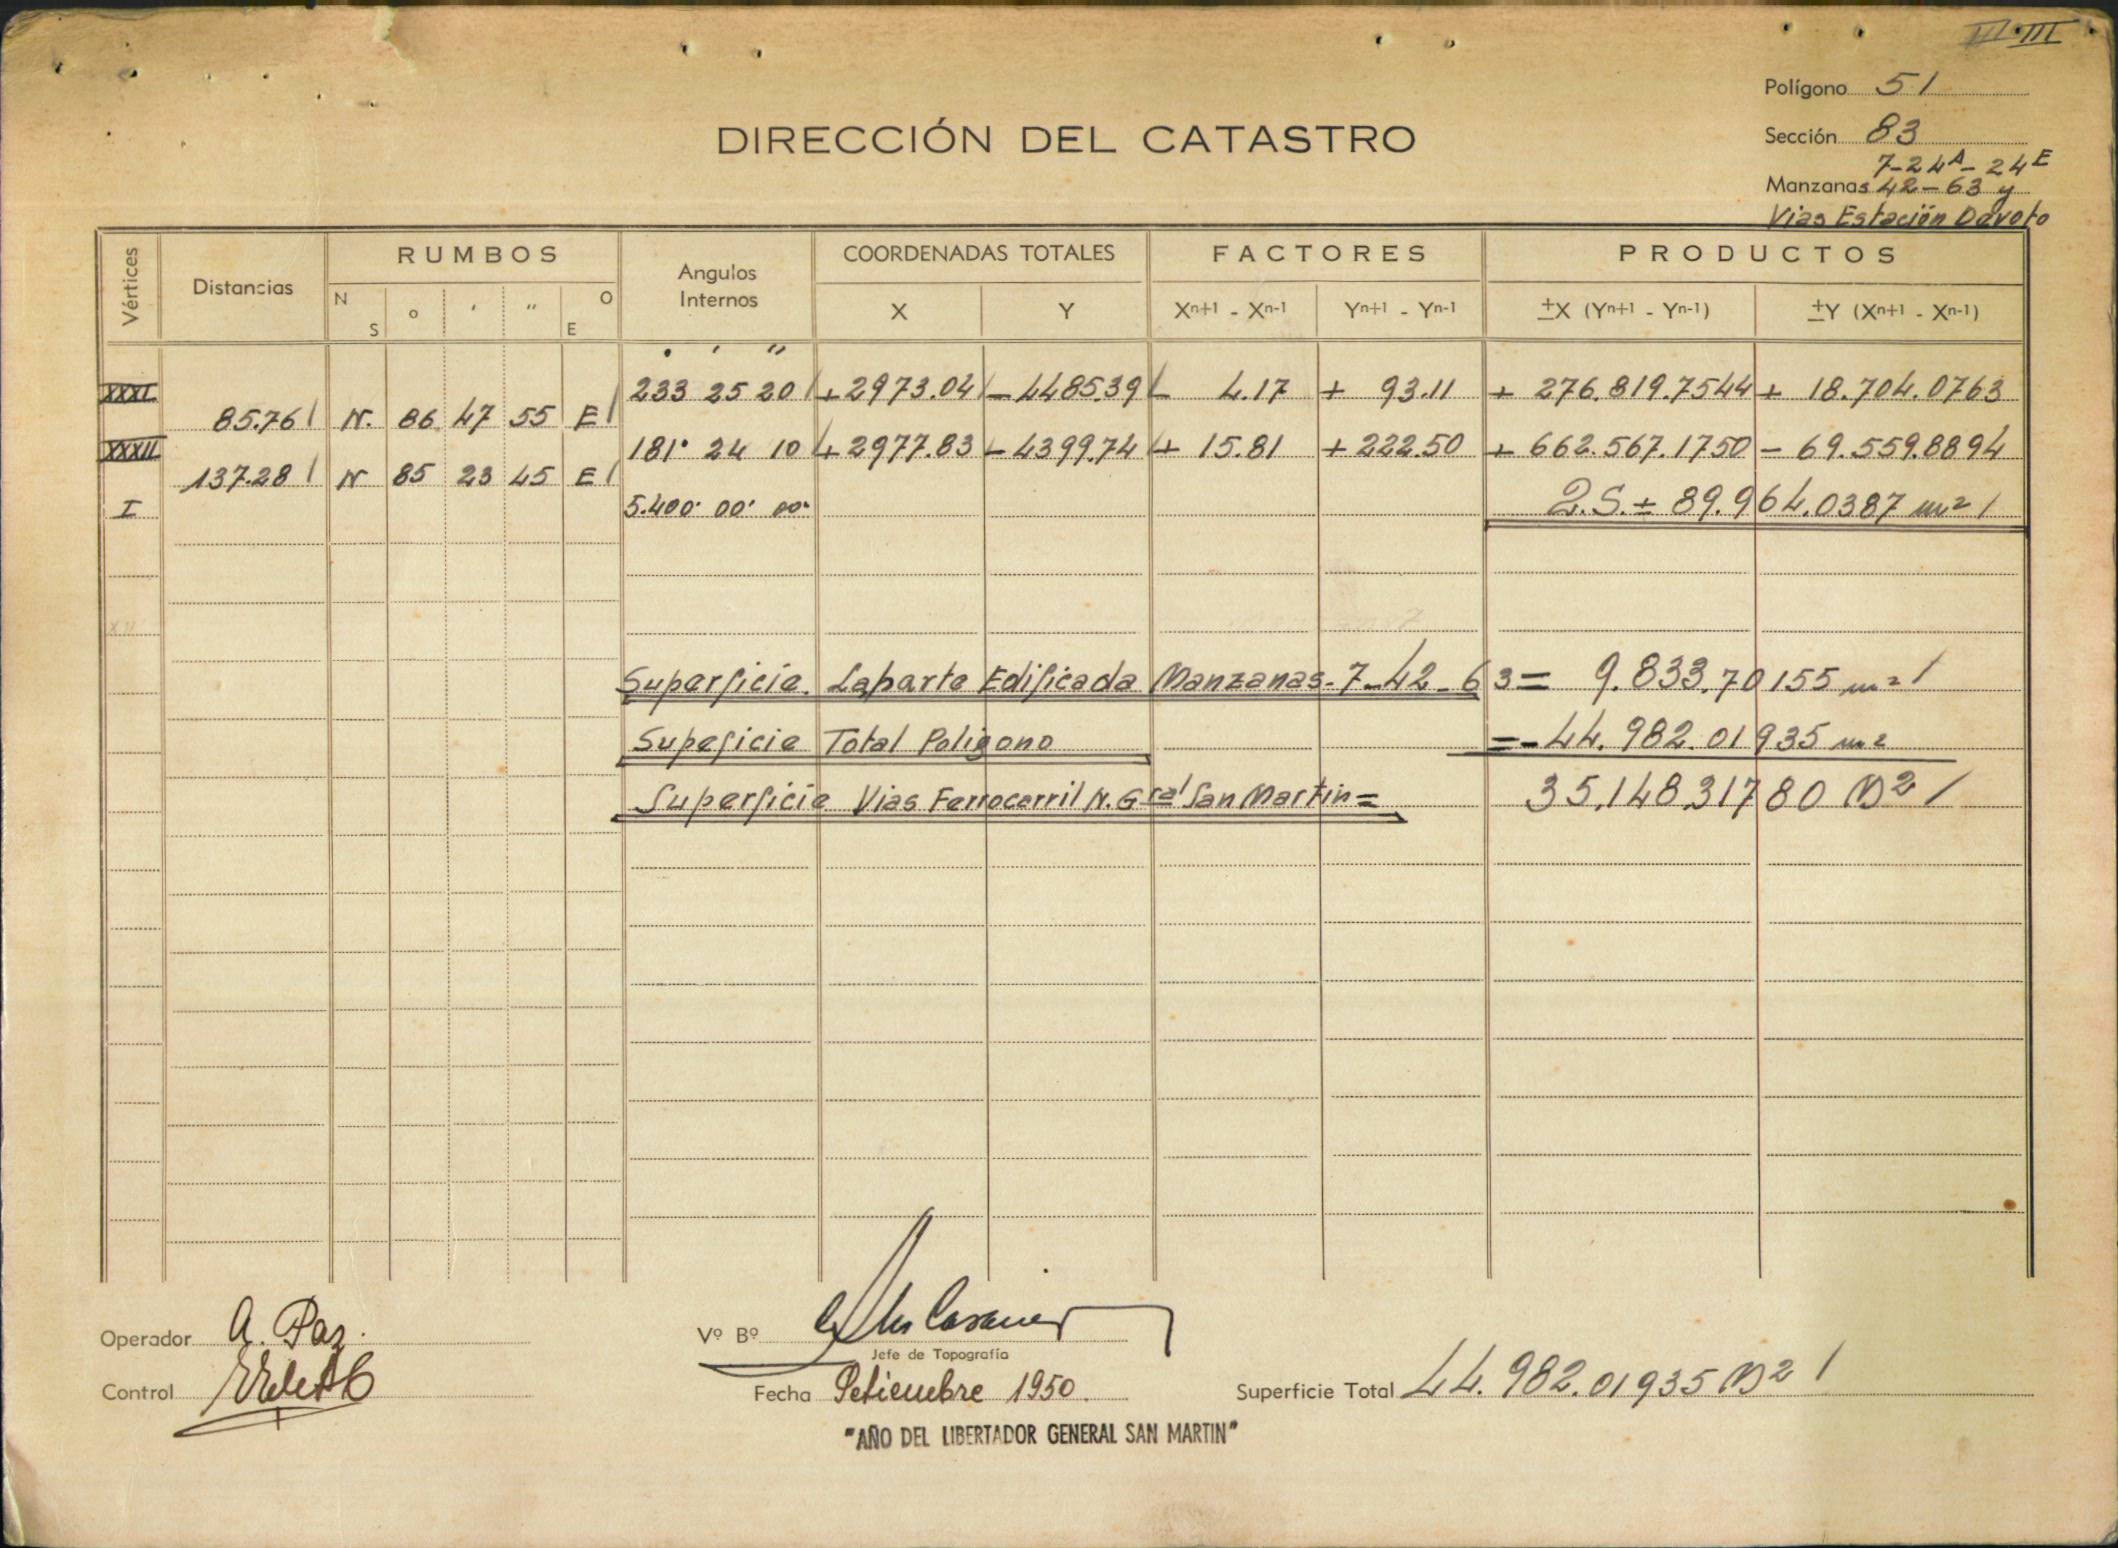 III-III
Polígono 51
Sección 83
7-24A-24E
Manzanas 42-63 y
Vias Estación Devoto
DIRECCIÓN DEL CATASTRO
Vértices Distancias RUMBOS Angulos Internos COORDENADAS TOTALES FACTORES PRODUCTOS
N S o ' " O E X Y Xn+1 - Xn-1 Yn+1 - Yn-1 ±X (Yn+1 - Yn-1) ±Y (Xn+1 - Xn-1)
° ' "
XXXI 233 25 20 +2973.04 -4485.39 - 4.17 + 93.11 + 276.819.7544 + 18.704.0763
85.76 N. 86 47 55 E
XXXII 181° 24 10 +2977.83 -4399.74 + 15.81 +222.50 + 662.567.1750 - 69.559.8894
137.28 N 85 23 45 E
I 5.400° 00' 00" 2.S.± 89.964.0387 m2
Superficie Laparte Edificada Manzanas-7-42-63= 9.833.70155 m2
Supeficie Total Poligono =-44.982.01935 m2
Superficie Vias Ferrocarril N. Gral San Martin= 35.148.31780 M2
Operador A. Paz.
Control
Vº Bº
Jefe de Topografía
Fecha Setiembre 1950.
Superficie Total 44.982.01935 M2
"AÑO DEL LIBERTADOR GENERAL SAN MARTIN"